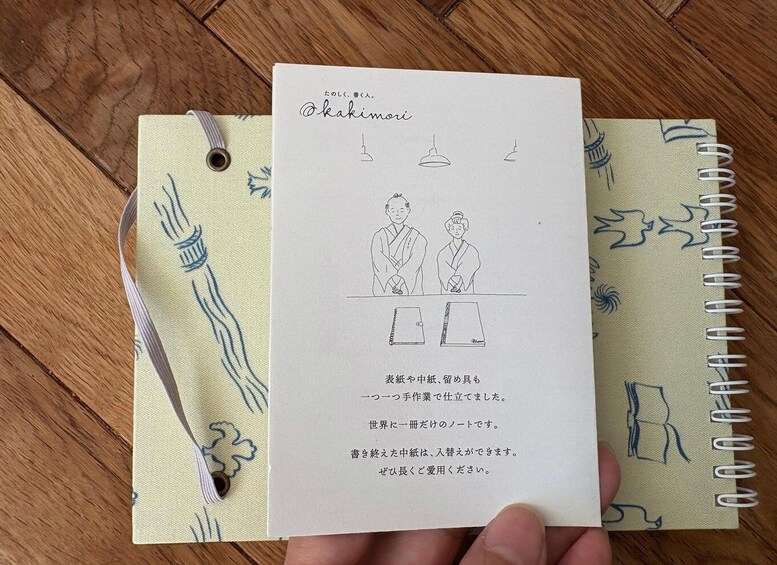 たのしく、書く人。
kakimori
表紙や中紙、留め具も
一つ一つ手作業で仕立てました。
世界に一冊だけのノートです。
書き終えた中紙は、入替えができます。
ぜひ長くご愛用ください。